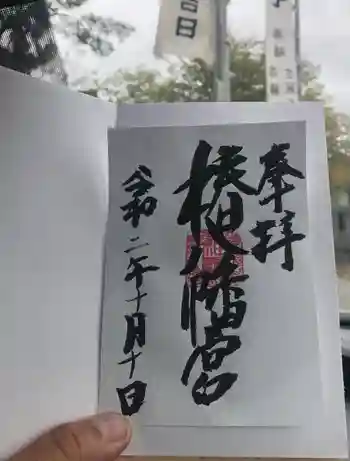 奉拝
椿八幡宮
令和二年十月十日
吉日